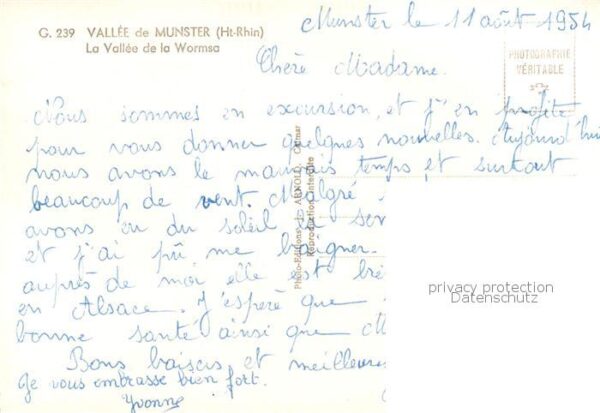 G. 239 VALLÉE de MUNSTER (Ht-Rhin)
La Vallée de la Wormsa
Munster le 11 août 1954
PHOTOGRAPHIE
VÉRITABLE
Chère Madame.
Nous sommes en excursion, et j'en profite
pour vous donner quelques nouvelles. Aujourd'hui
nous avons le mauvais temps et surtout
beaucoup de vent. Malgré
avons eu du soleil
et j'ai pû me baigner.
auprès de moi elle est
en Alsace. J'espère que
bonne santé ainsi que
Bons baisers et meilleurs
Je vous embrasse bien fort.
Yvonne
Photo-Editions J. ARNOLD, Colmar
Reproduction interdite
privacy protection
Datenschutz